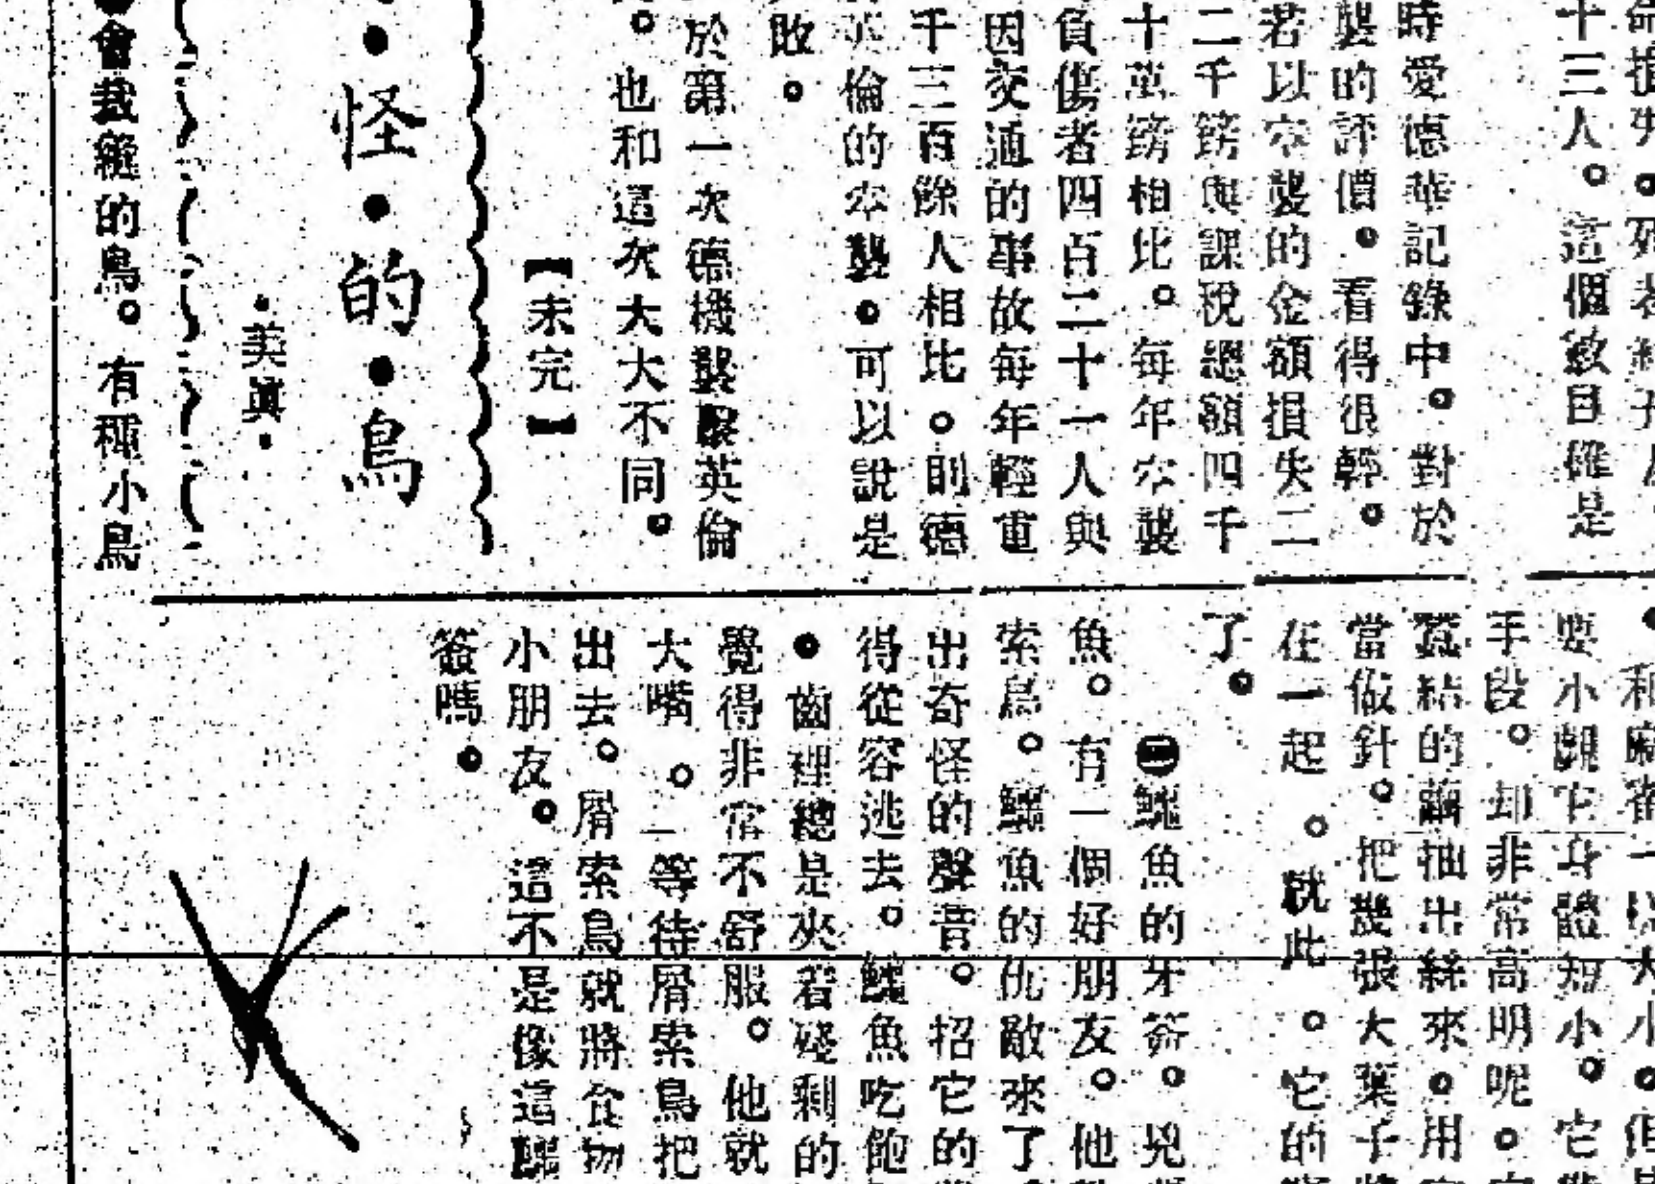 十三人。這個數目確是
時愛德華記錄中。對於
襲的評價。看得很輕。
若以空襲的金額損失二
二千鎊與課稅總額四千
十萬鎊相比。每年空襲
負傷者四百二十一人與
因交通的事故每年輕重
千三百餘人相比。則德
英倫的空襲。可以說是
敗。
於第一次德機襲擊英倫
。也和這次大大不同。
【未完】
怪的鳥
美眞
會裁縫的鳥。有種小鳥
和麻雀一樣大小。但
要小翅窄身體短小。它
手段。却非常高明呢。
蠶結的繭抽出絲來。用
當做針。把幾張大葉子
在一起。就此。它的
了。
㊁鱷魚的牙簽。兇
魚。有一個好朋友。他
索鳥。鱷魚的仇敵來了
出奇怪的聲音。招它的
得從容逃去。鱷魚吃飽
。齒裡總是夾着殘剩的
覺得非常不舒服。他就
大嘴。一等待屑索鳥把
出去。屑索鳥就將食物
小朋友。這不是像這鱷
簽嗎。